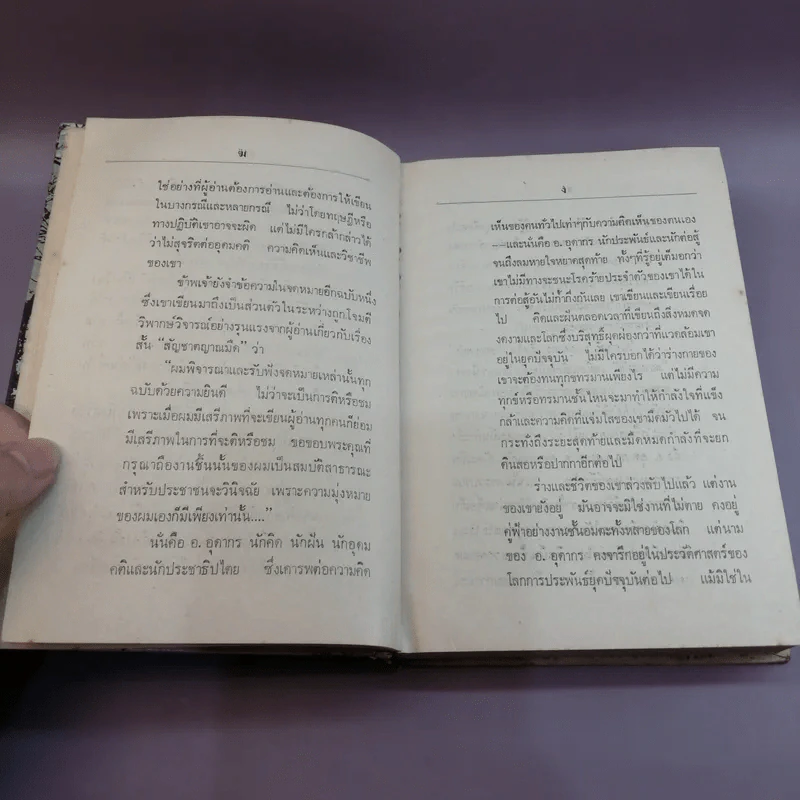 ใช่อย่างที่ผู้อ่านต้องการอ่านและต้องการให้เขียน
ในบางกรณีและหลายกรณี ไม่ว่าโดยทฤษฎีหรือ
ทางปฏิบัติเขาอาจจะผิด แต่ไม่มีใครกล้ากล่าวได้
ว่าไม่สุจริตต่ออุดมคติ ความคิดเห็นและวิชาชีพ
ของเขา
ข้าพเจ้ายังจำข้อความในจดหมายอีกฉบับหนึ่ง
ซึ่งเขาเขียนมาถึงเป็นส่วนตัวในระหว่างถูกโจมตี
วิพากษ์วิจารณ์อย่างรุนแรงจากผู้อ่านเกี่ยวกับเรื่อง
สั้น "สัญชาตญาณมืด" ว่า
"ผมพิจารณาและรับฟังจดหมายเหล่านั้นทุก
ฉบับด้วยความยินดี ไม่ว่าจะเป็นการติหรือชม
เพราะเมื่อผมมีเสรีภาพที่จะเขียนผู้อ่านทุกคนก็ย่อม
มีเสรีภาพในการที่จะติหรือชม ขอขอบพระคุณที่
กรุณาถือว่างานชิ้นนั้นของผมเป็นสมบัติสาธารณะ
สำหรับประชาชนจะวินิจฉัย เพราะความมุ่งหมาย
ของผมเองก็มีเพียงเท่านั้น...."
นั่นคือ อ. อุดากร นักคิด นักฝัน นักอุดม
คติและนักประชาธิปไตย ซึ่งเคารพต่อความคิด
ง
เห็นของคนทั่วไปเท่าๆกับความคิดเห็นของตนเอง
--และนั่นคือ อ. อุดากร นักประพันธ์และนักต่อสู้
จนถึงลมหายใจหยาดสุดท้าย ทั้งๆที่รู้อยู่เต็มอกว่า
เขาไม่มีทางจะชนะโรคร้ายประจำตัวของเขาได้ใน
การต่อสู้อันไม่ก้ำกึ่งกันเลย เขาเขียนและเขียนเรื่อย
ไป คิดและฝันตลอดเวลาที่เขียนถึงสิ่งหมดจด
งดงามและโลกซึ่งบริสุทธิ์ผุดผ่องกว่าที่แวดล้อมเขา
อยู่ในยุคปัจจุบัน ไม่มีใครบอกได้ว่าร่างกายของ
เขาจะต้องทนทุกข์ทรมานเพียงไร แต่ไม่มีความ
ทุกข์หรือทรมานชั้นไหนจะมาทำให้กำลังใจที่แข็ง
กล้าและความคิดที่แจ่มใสของเขามืดมัวไปได้ จน
กระทั่งถึงระยะสุดท้ายและมืดหมดกำลังที่จะยก
ดินสอหรือปากกาอีกต่อไป
ร่างและชีวิตของเขาล่วงลับไปแล้ว แต่งาน
ของเขายังอยู่ มันอาจจะมิใช่งานที่ไม่ตาย คงอยู่
คู่ฟ้าอย่างงานชั้นอมตะทั้งหลายของโลก แต่นาม
ของ อ. อุดากร คงจารึกอยู่ในประวัติศาสตร์ของ
โลกการประพันธ์ยุคปัจจุบันต่อไป แม้มิใช่ใน